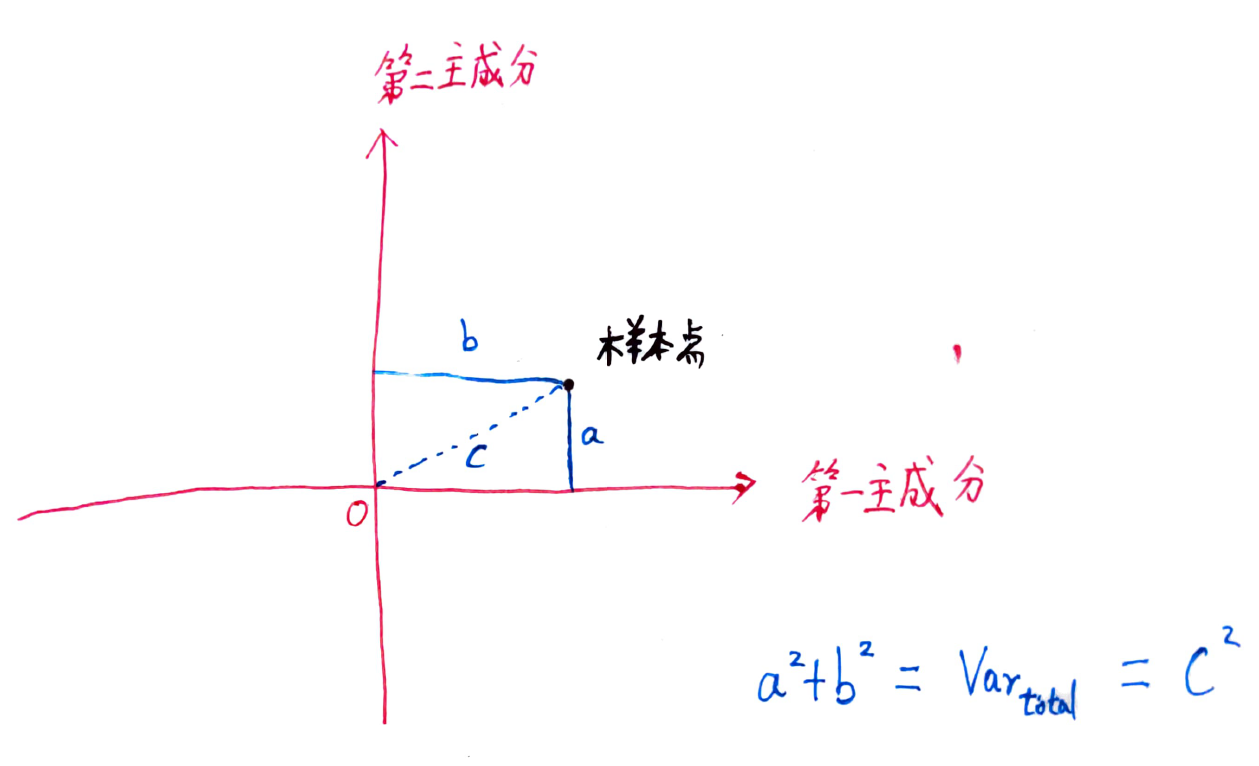 第二主成分
b
样本点
a
c
O
第一主成分
a²+b² = Var_total = C²